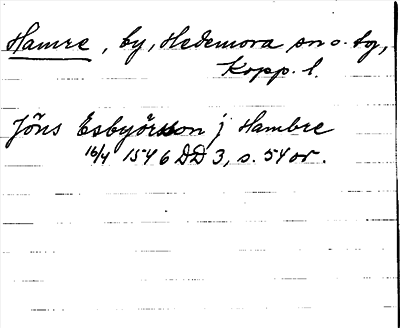 Hamre, by, Hedemora sn o. tg,
Kopp. l.
Jöns Esbyörsson j Hambre
16/4 1546 DD 3, s. 54 or.